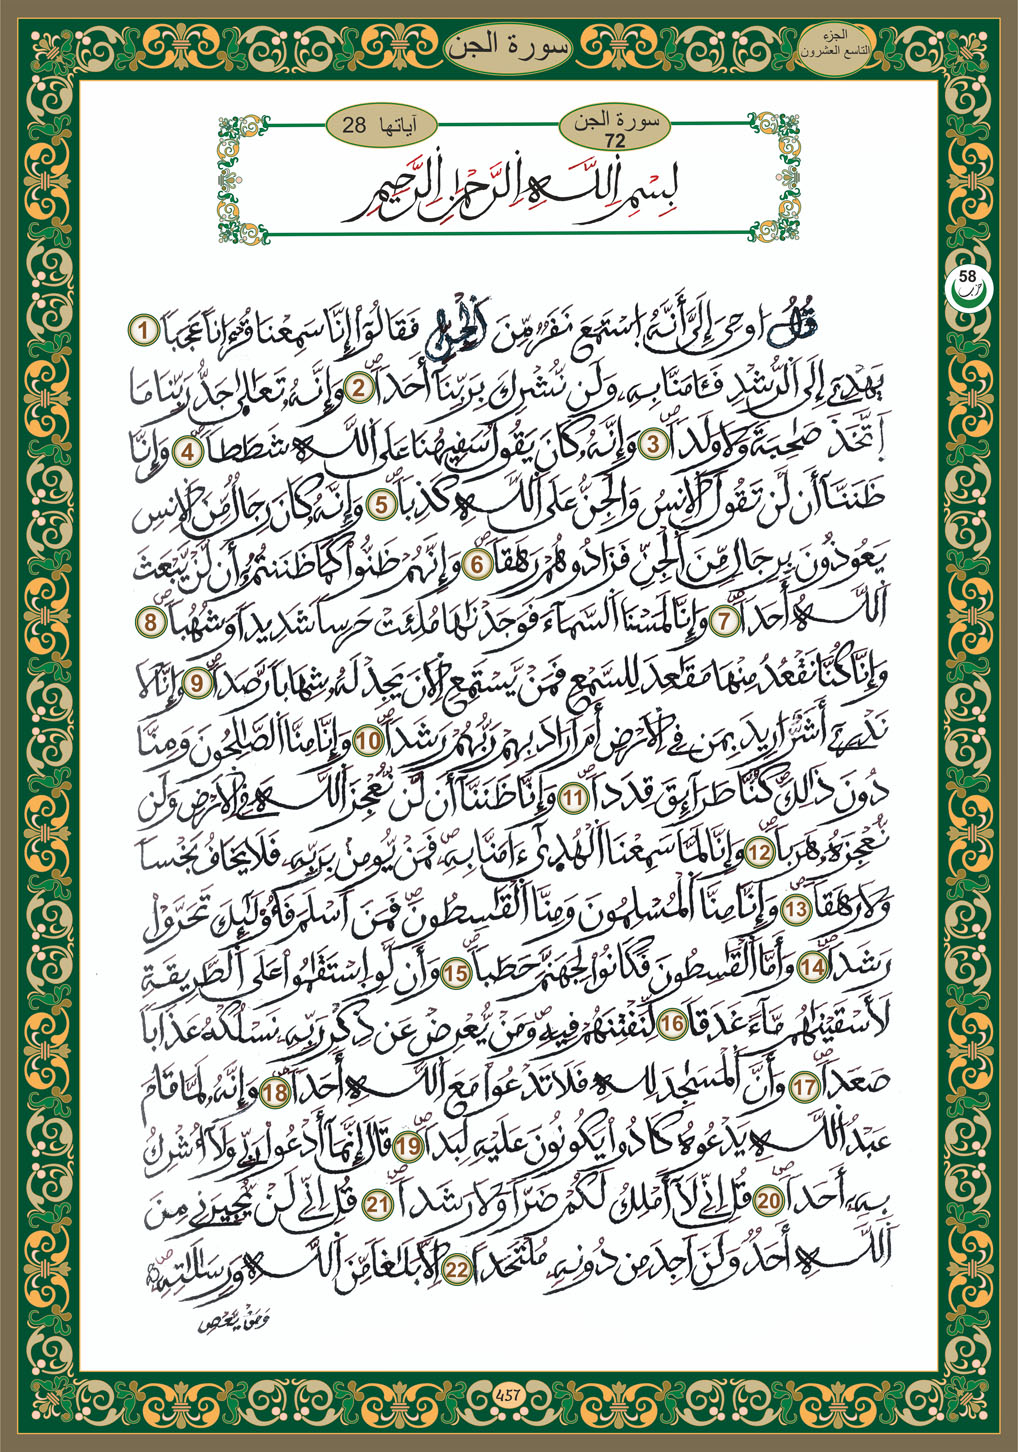 الجزء
التاسع العشرون
سورة الجن
سورة الجن
72
آياتها 28
بِسْمِ اِللَّهِ اِلرَّحْمَٰنِ اِلرَّحِيمِ
58
حزب
قُلُ ا۟وحِيَ إِلَيَّ أَنَّهُ اُ۪سْتَمَعَ نَفَرٌ مِّنَ اَ۬لْجِنِّ فَقَالُوٓاْ إِنَّا سَمِعْنَا قُرْءَاناً عَجَباً 1
يَهْدِےٓ إِلَى اَ۬لرُّشْدِ فَـَٔامَنَّا بِهِۦ وَلَن نُّشْرِكَ بِرَبِّنَآ أَحَداً 2 وَإِنَّهُۥ تَعَٰلَىٰ جَدُّ رَبِّنَا مَا
اَ۪تَّخَذَ صَٰحِبَةً وَلَا وَلَداً 3 وَإِنَّهُۥ كَانَ يَقُولُ سَفِيهُنَا عَلَى اَ۬للَّهِ شَطَطاً 4 وَإِنَّا
ظَنَنَّآ أَن لَّن تَقُولَ اَ۬لِانسُ وَالْجِنُّ عَلَى اَ۬للَّهِ كَذِباً 5 وَإِنَّهُۥ كَانَ رِجَالٌ مِّنَ اَ۬لِانسِ
يَعُوذُونَ بِرِجَالٍ مِّنَ اَ۬لْجِنِّ فَزَادُوهُمْ رَهَقاً 6 وَإِنَّهُمْ ظَنُّواْ كَمَا ظَنَنتُمُۥٓ أَن لَّنْ يَّبْعَثَ
اَ۬للَّهُ أَحَداً 7 وَإِنَّا لَمَسْنَا اَ۬لسَّمَآءَ فَوَجَدْنَٰهَا مُلِئَتْ حَرَساً شَدِيداً وَشُهُباً 8
وَإِنَّا كُنَّا نَقْعُدُ مِنْهَا مَقَٰعِدَ لِلسَّمْعِ فَمَنْ يَّسْتَمِعِ اِ۬لَانَ يَجِدْ لَهُۥ شِهَاباً رَّصَداً 9 وَإِنَّا لَا
نَدْرِےٓ أَشَرٌّ ا۟رِيدَ بِمَن فِے اِ۬لَارْضِ أَمَ اَرَادَ بِهِمْ رَبُّهُمْ رَشَداً 10 وَإِنَّا مِنَّا اَ۬لصَّٰلِحُونَ وَمِنَّا
دُونَ ذَٰلِكَ كُنَّا طَرَآئِقَ قِدَداً 11 وَإِنَّا ظَنَنَّآ أَن لَّن نُّعْجِزَ اَ۬للَّهَ فِے اِ۬لَارْضِ وَلَن
نُّعْجِزَهُۥ هَرَباً 12 وَإِنَّا لَمَّا سَمِعْنَا اَ۬لْهُدَىٰٓ ءَامَنَّا بِهِۦ فَمَنْ يُّومِنۢ بِرَبِّهِۦ فَلَا يَخَافُ بَخْساً
وَلَا رَهَقاً 13 وَإِنَّا مِنَّا اَ۬لْمُسْلِمُونَ وَمِنَّا اَ۬لْقَٰسِطُونَ فَمَنَ اَسْلَمَ فَأُوْلَٰٓئِكَ تَحَرَّوْاْ
رَشَداً 14 وَأَمَّا اَ۬لْقَٰسِطُونَ فَكَانُواْ لِجَهَنَّمَ حَطَباً 15 وَأَن لَّوِ اِ۪سْتَقَٰمُواْ عَلَى اَ۬لطَّرِيقَةِ
لَأَسْقَيْنَٰهُم مَّآءً غَدَقاً 16 لِّنَفْتِنَهُمْ فِيهِ وَمَنْ يُّعْرِضْ عَن ذِكْرِ رَبِّهِۦ نَسْلُكْهُ عَذَاباً
صَعَداً 17 وَأَنَّ اَ۬لْمَسَٰجِدَ لِلهِ فَلَا تَدْعُواْ مَعَ اَ۬للَّهِ أَحَداً 18 وَإِنَّهُۥ لَمَّا قَامَ
عَبْدُ اُ۬للَّهِ يَدْعُوهُ كَادُواْ يَكُونُونَ عَلَيْهِ لِبَداً 19 قَالَ إِنَّمَآ أَدْعُواْ رَبِّے وَلَآ أُشْرِكُ
بِهِۦٓ أَحَداً 20 قُلِ اِنِّے لَآ أَمْلِكُ لَكُمْ ضَرّاً وَلَا رَشَداً 21 قُلِ اِنِّے لَنْ يُّجِيرَنِے مِنَ
اَ۬للَّهِ أَحَدٌ وَلَنَ اَجِدَ مِن دُونِهِۦ مُلْتَحَداً 22 اِلَّا بَلَٰغاً مِّنَ اَ۬للَّهِ وَرِسَٰلَٰتِهِۦ
وَمَنْ يَّعْصِ
457